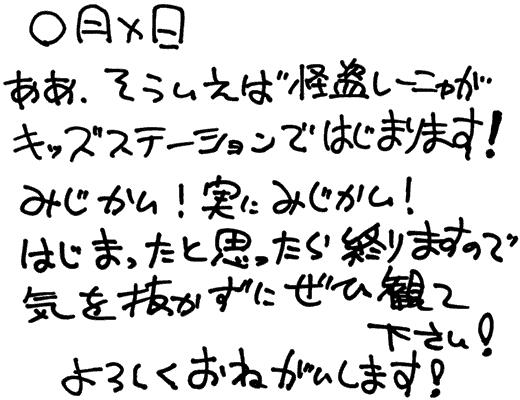 〇月×日
ああ、そういえば怪盗レーニャが
キッズステーションではじまります！
みじかい！実にみじかい！
はじまったと思ったら終りますので
気を抜かずにぜひ観て
下さい！
よろしくおねがいします！